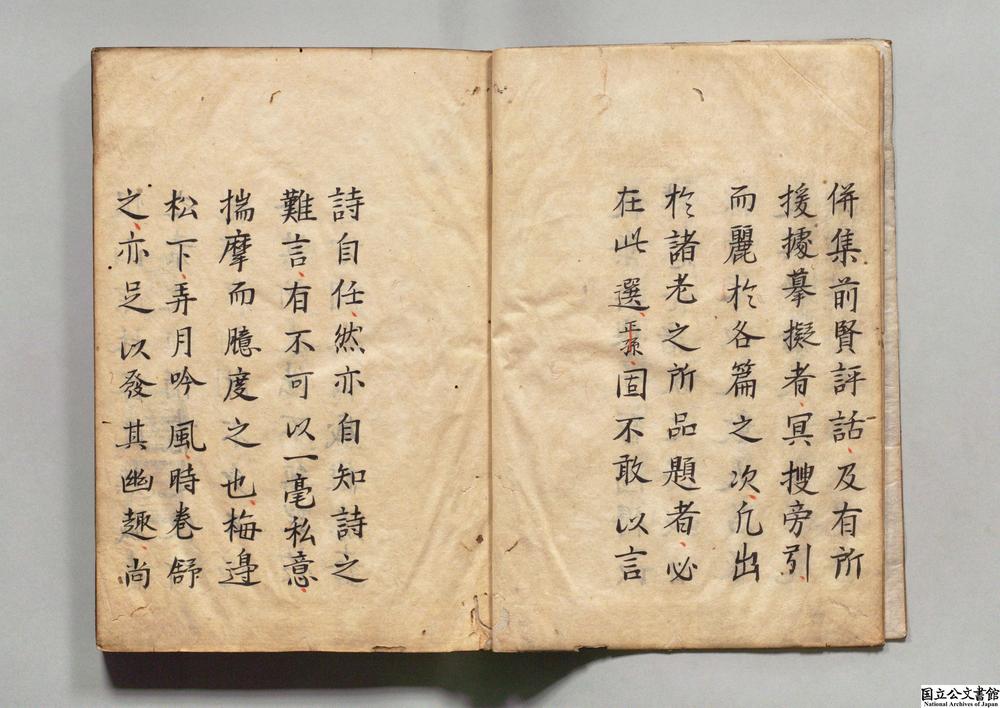 併集前賢評話及有所
援據摹擬者冥搜旁引
而麗於各篇之次凡出
於諸老之所品題者必
在此選正孫固不敢以言
詩自任然亦自知詩之
難言有不可以一毫私意
揣摩而臆度之也梅邊
松下弄月吟風時卷舒
之亦足以發其幽趣尚
国立公文書館
National Archives of Japan